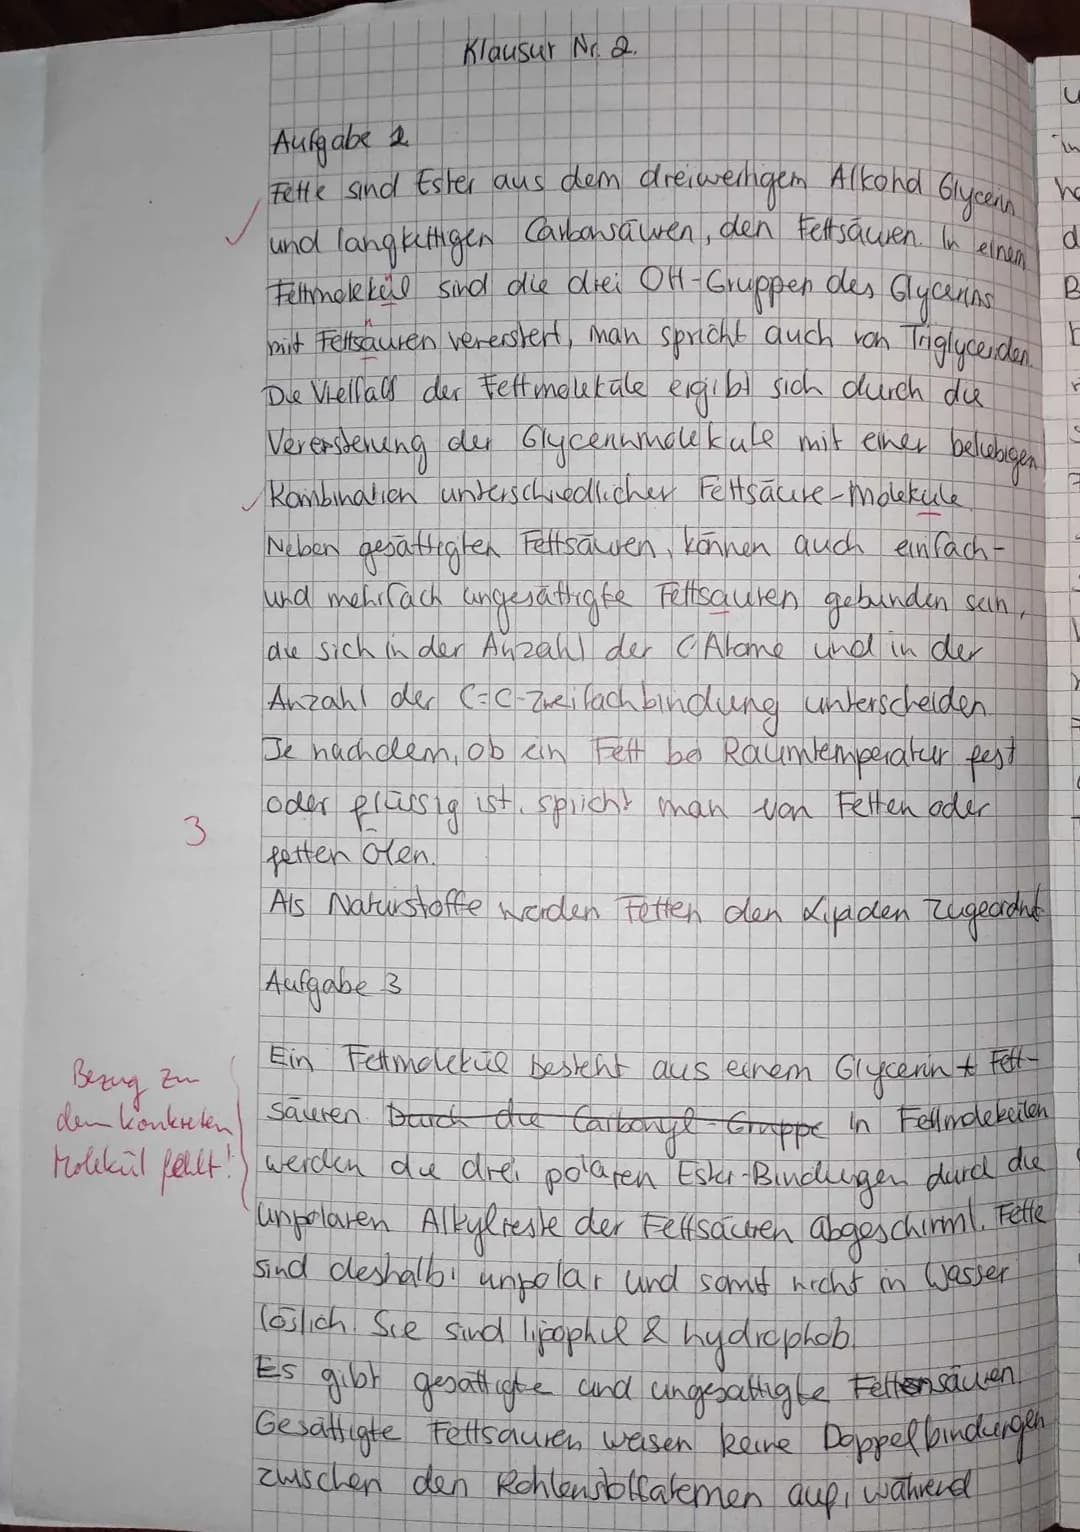 Klausur Nr. 2.
Aufgabe 2
Fette sind Ester aus dem dreiwertigem Alkohol Glycerin
und langkettigen Carbonsäuren, den Fettsäuren. In einem
Fettmolekül sind die drei OH-Gruppen des Glycerins
mit Fettsäuren verestert, man spricht auch von Triglyceriden.
Die Vielfalt der Fettmoleküle ergibt sich durch die
Veresterung der Glycerinmoleküle mit einer beliebigen
Kombination unterschiedlicher Fettsäure-Moleküle.
Neben gesättigten Fettsäuren, können auch einfach-
und mehrfach ungesättigte Fettsäuren gebunden sein,
die sich in der Anzahl der C Atome und in der
Anzahl der C=C-Zweifachbindung unterscheiden.
Je nachdem, ob ein Fett bei Raumtemperatur fest
oder flüssig ist, spricht man von Fetten oder
3
fetten Ölen.
Als Naturstoffe werden Fetten den Lipiden zugeordnet
Aufgabe 3
Ein Fettmolekül besteht aus einem Glycerin + Fett-
säuren. Durch die Carbonyl-Gruppe In Fettmolekülen
werden die drei polaren Ester-Bindungen durch die
unpolaren Alkylreste der Fettsäuren abgeschirmt. Fette
sind deshalb unpolar und somit nicht in Wasser
löslich. Sie sind lipophil & hydrophob.
Es gibt gesättigte und ungesättigte Fettensäuren.
Gesättigte Fettsäuren weisen keine Doppelbindungen
zwischen den Kohlenstoffatomen auf, während
Bezug zu
dem konkreten
Molekül fehlt!